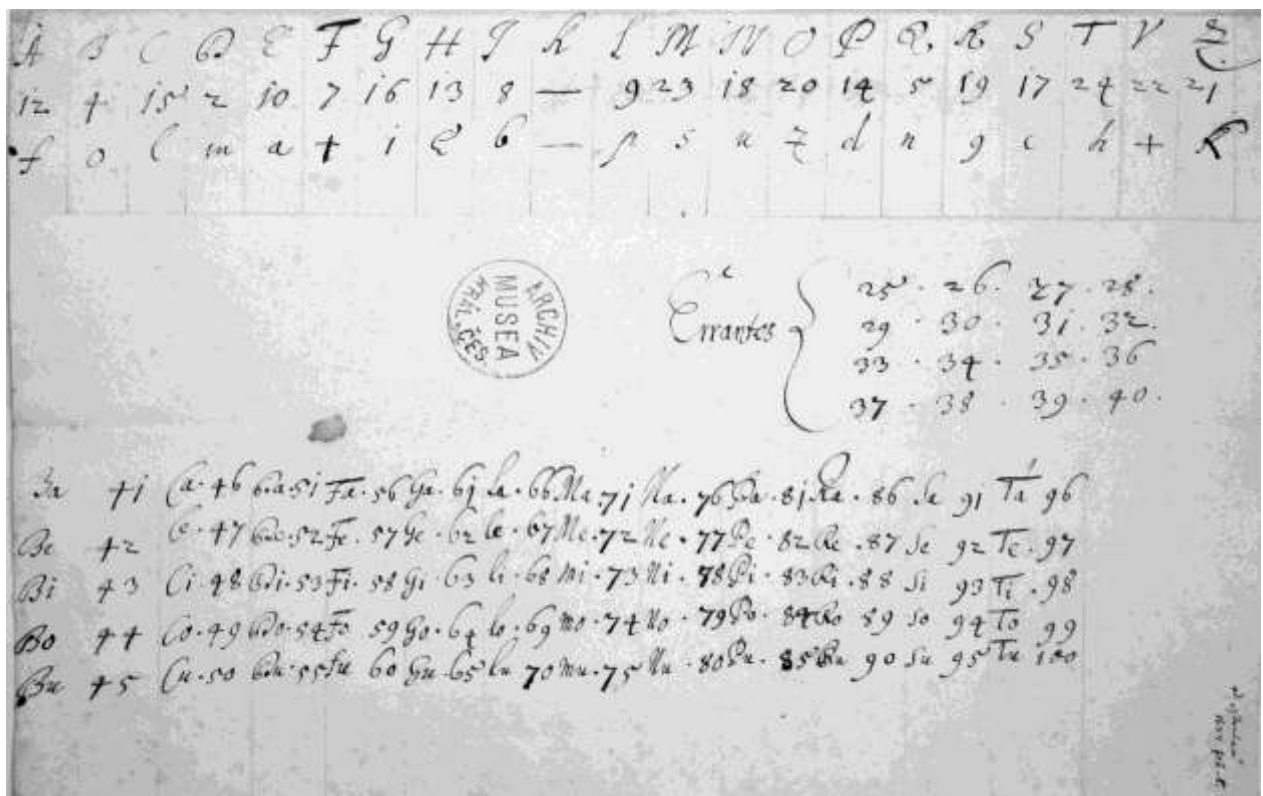 A B C D E F G H I K L M N O P Q R S T V Z
12 4 15 2 10 7 16 13 8 — 9 23 18 20 14 5 19 17 24 22 21
f o l m a + i e b — p s u z d n g c h + K
ARCHIV
MUSEA
KRÁL. ČES.
Errantes
25 · 26 · 27 · 28 ·
29 · 30 · 31 · 32 ·
33 · 34 · 35 · 36
37 · 38 · 39 · 40 ·
Ba 41 Ca · 46 Da · 51 Fa · 56 Ga · 61 La · 66 Ma · 71 Na · 76 Pa · 81 Ra · 86 Sa 91 Ta 96
Be 42 Ce · 47 De · 52 Fe · 57 Ge · 62 Le · 67 Me · 72 Ne · 77 Pe · 82 Re · 87 Se 92 Te · 97
Bi 43 Ci · 48 Di · 53 Fi · 58 Gi · 63 Li · 68 Mi · 73 Ni · 78 Pi · 83 Ri · 88 Si 93 Ti · 98
Bo 44 Co · 49 Do · 54 Fo 59 Go · 64 Lo · 69 Mo · 74 No · 79 Po · 84 Ro 89 So 94 To 99
Bu 45 Cu · 50 Du · 55 Fu 60 Gu · 65 Lu 70 Mu · 75 Nu · 80 Pu · 85 Ru 90 Su 95 Tu 100